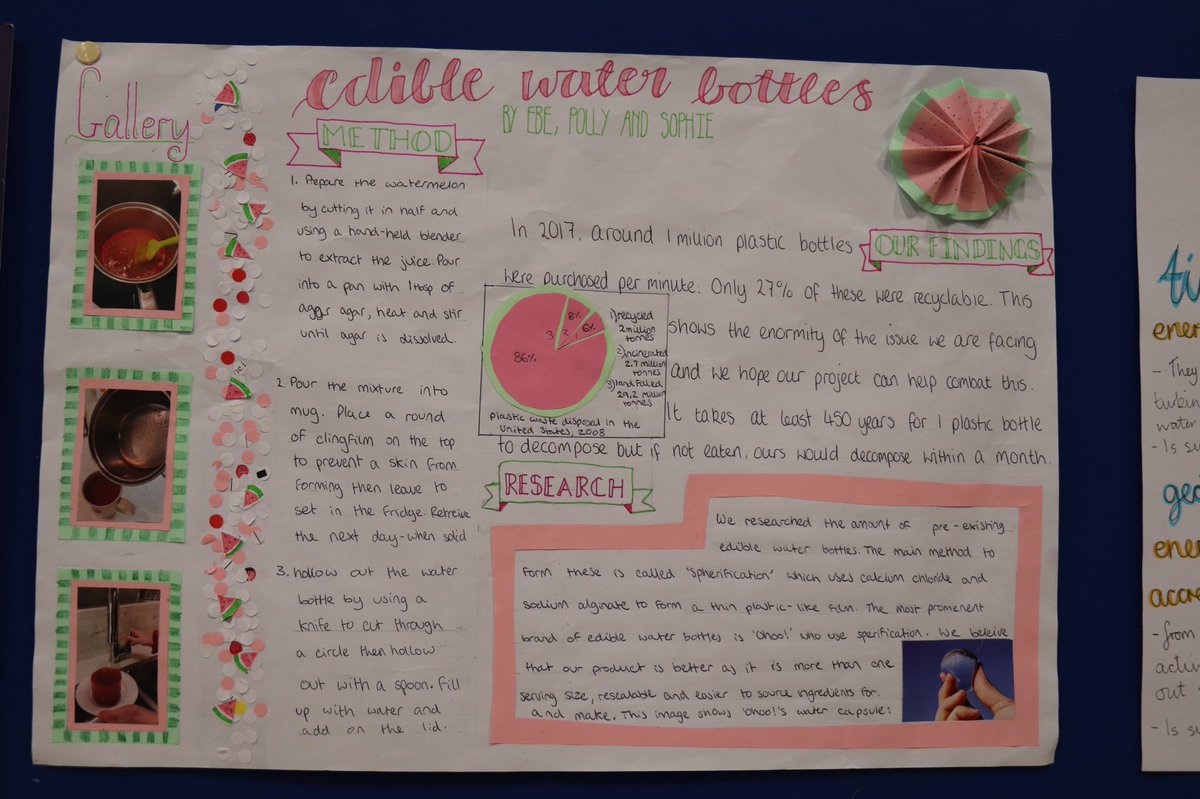 Gallery
edible water bottles
BY EBE, POLLY AND SOPHIE
METHOD
1. Prepare the watermelon
by cutting it in half and
using a hand-held blender
to extract the juice. Pour
into a pan with 1 tbsp of
agar, heat and stir
until agar is dissolved.
2. Pour the mixture into
mug. Place a round
of clingfilm on the top
to prevent a skin from
forming then leave to
set in the fridge. Retreive
the next day - when solid
3. Hollow out the water
bottle by using a
knife to cut through
a circle then hollow
out with a spoon. Fill
up with water and
add on the lid.
OUR FINDINGS
In 2017, around 1 million plastic bottles
were purchased per minute. Only 27% of these were recyclable. This
shows the enormity of the issue we are facing
and we hope our project can help combat this.
It takes at least 450 years for 1 plastic bottle
to decompose but if not eaten, ours would decompose within a month.
86%
3
8%
2
6%
1
1) recycled
2 million
tonnes
2) incinerated
2.7 million
tonnes
3) landfilled
29.2 million
tonnes
plastic waste disposal in the
United States, 2008
RESEARCH
We researched the amount of pre-existing
edible water bottles. The main method to
form these is called "spherification" which uses calcium chloride and
sodium alginate to form a thin plastic-like film. The most promenent
brand of edible water bottles is 'Ohoo!' who use sperification. We beleive
that our product is better as it is more than one
serving size, resealable and easier to source ingredients for.
and make. This image shows 'Ohoo!'s water capsule:
- They
water
- Is
- from
out
- Is